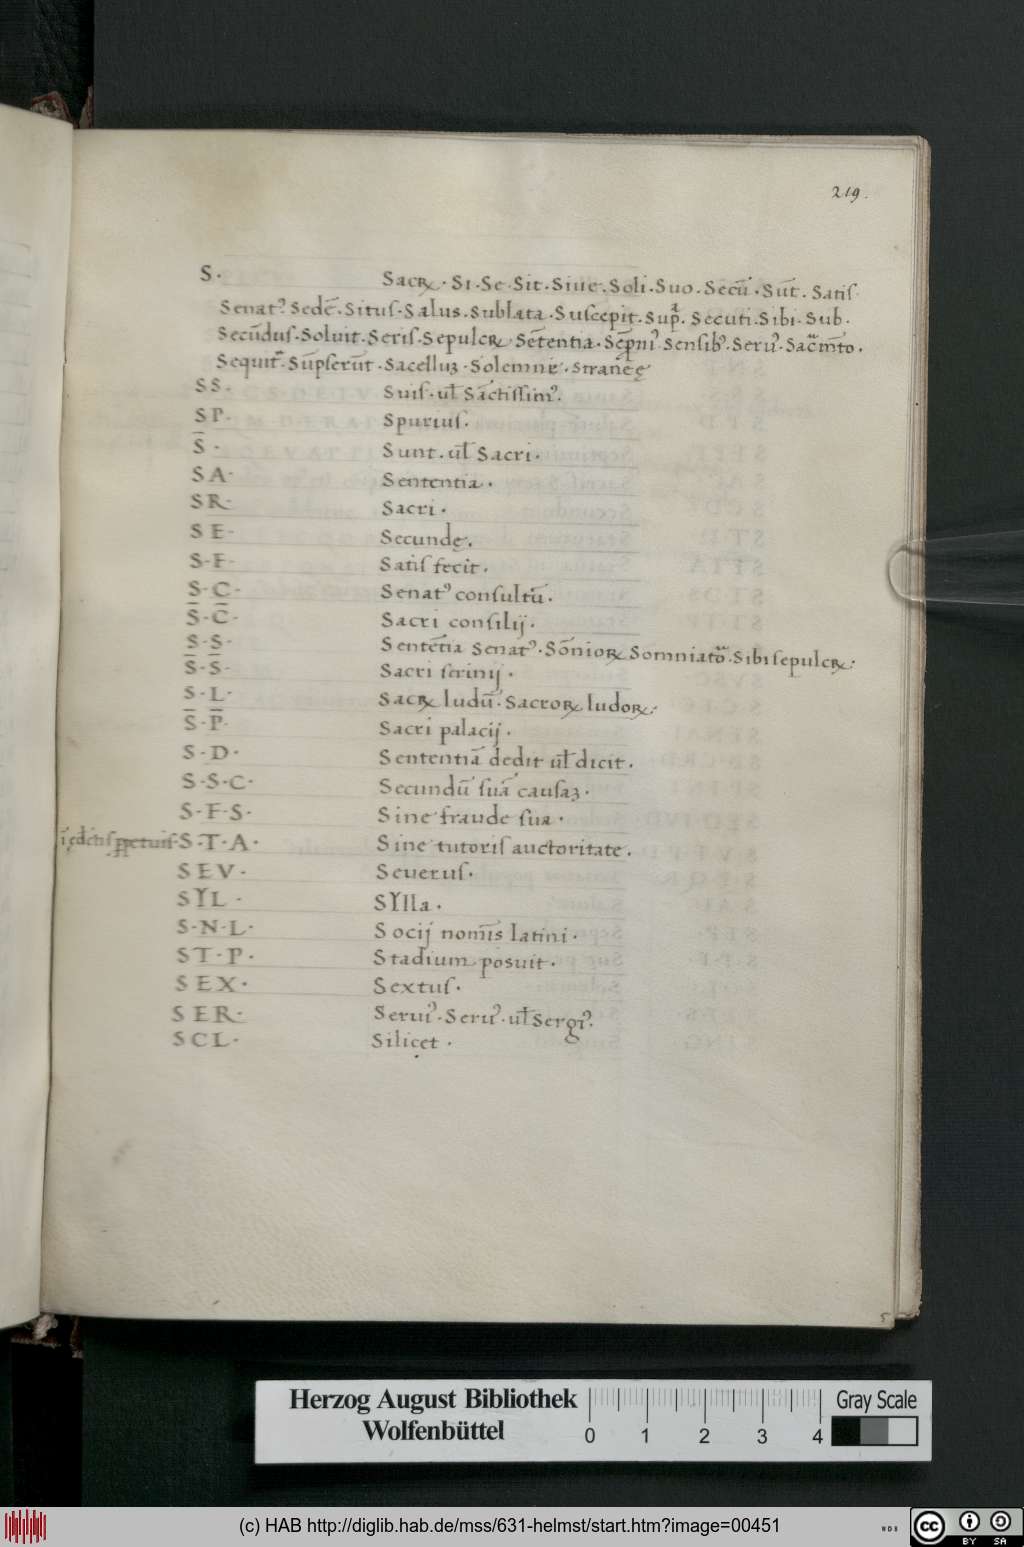 219.
S· Sacꝝ· Si·Se·Sit·Siue·Soli·Suo·Secū·Sūt·Satis·
Senatꝰ Sedē·Situs·Salus·Sublata·Suscepit·Supª·Secuti·Sibi·Sub·
Secūdus·Soluit·Seris·Sepulcꝝ Setētia· Sensibꝰ·Seruꝰ·
Sequit᷑·Sūpserūt·Sacelluꝫ·Solemne·
SS· Suis·ul̄ Sāctissimꝰ·
SP· Spurius·
S̄· Sunt·ul̄ Sacri·
SA· Sententia·
SR· Sacri·
SE· Secundę·
S·F· Satis fecit·
S·C· Senatꝰ consultū·
S̄·C̄· Sacri consilij·
S·S· Sentētia Senatꝰ·Sōnioꝝ Sibi sepulcꝝ·
S̄·S̄· Sacri scrinij·
S·L· Sacꝝ ludū·Sacroꝝ ludoꝝ·
S̄·P̄· Sacri palacij·
S·D· Sententiā dedit ul̄ dicit·
S·S·C· Secundū suā causaꝫ·
S·F·S· Sine fraude sua·
ī ędictis ꝑpetuis·S·T·A· Sine tutoris auctoritate·
SEV· Seuerus·
SYL· SYlla·
S·N·L· Socij nomīs latini·
ST·P· Stadium posuit·
SEX· Sextus·
SER· Seruiꝰ·Seruꝰ·ul̄ Sergiꝰ·
SCL· Silicet·
5
Herzog August Bibliothek
Wolfenbüttel
0 1 2 3 4
Gray Scale
(c) HAB http://diglib.hab.de/mss/631-helmst/start.htm?image=00451
WDB
cc BY SA